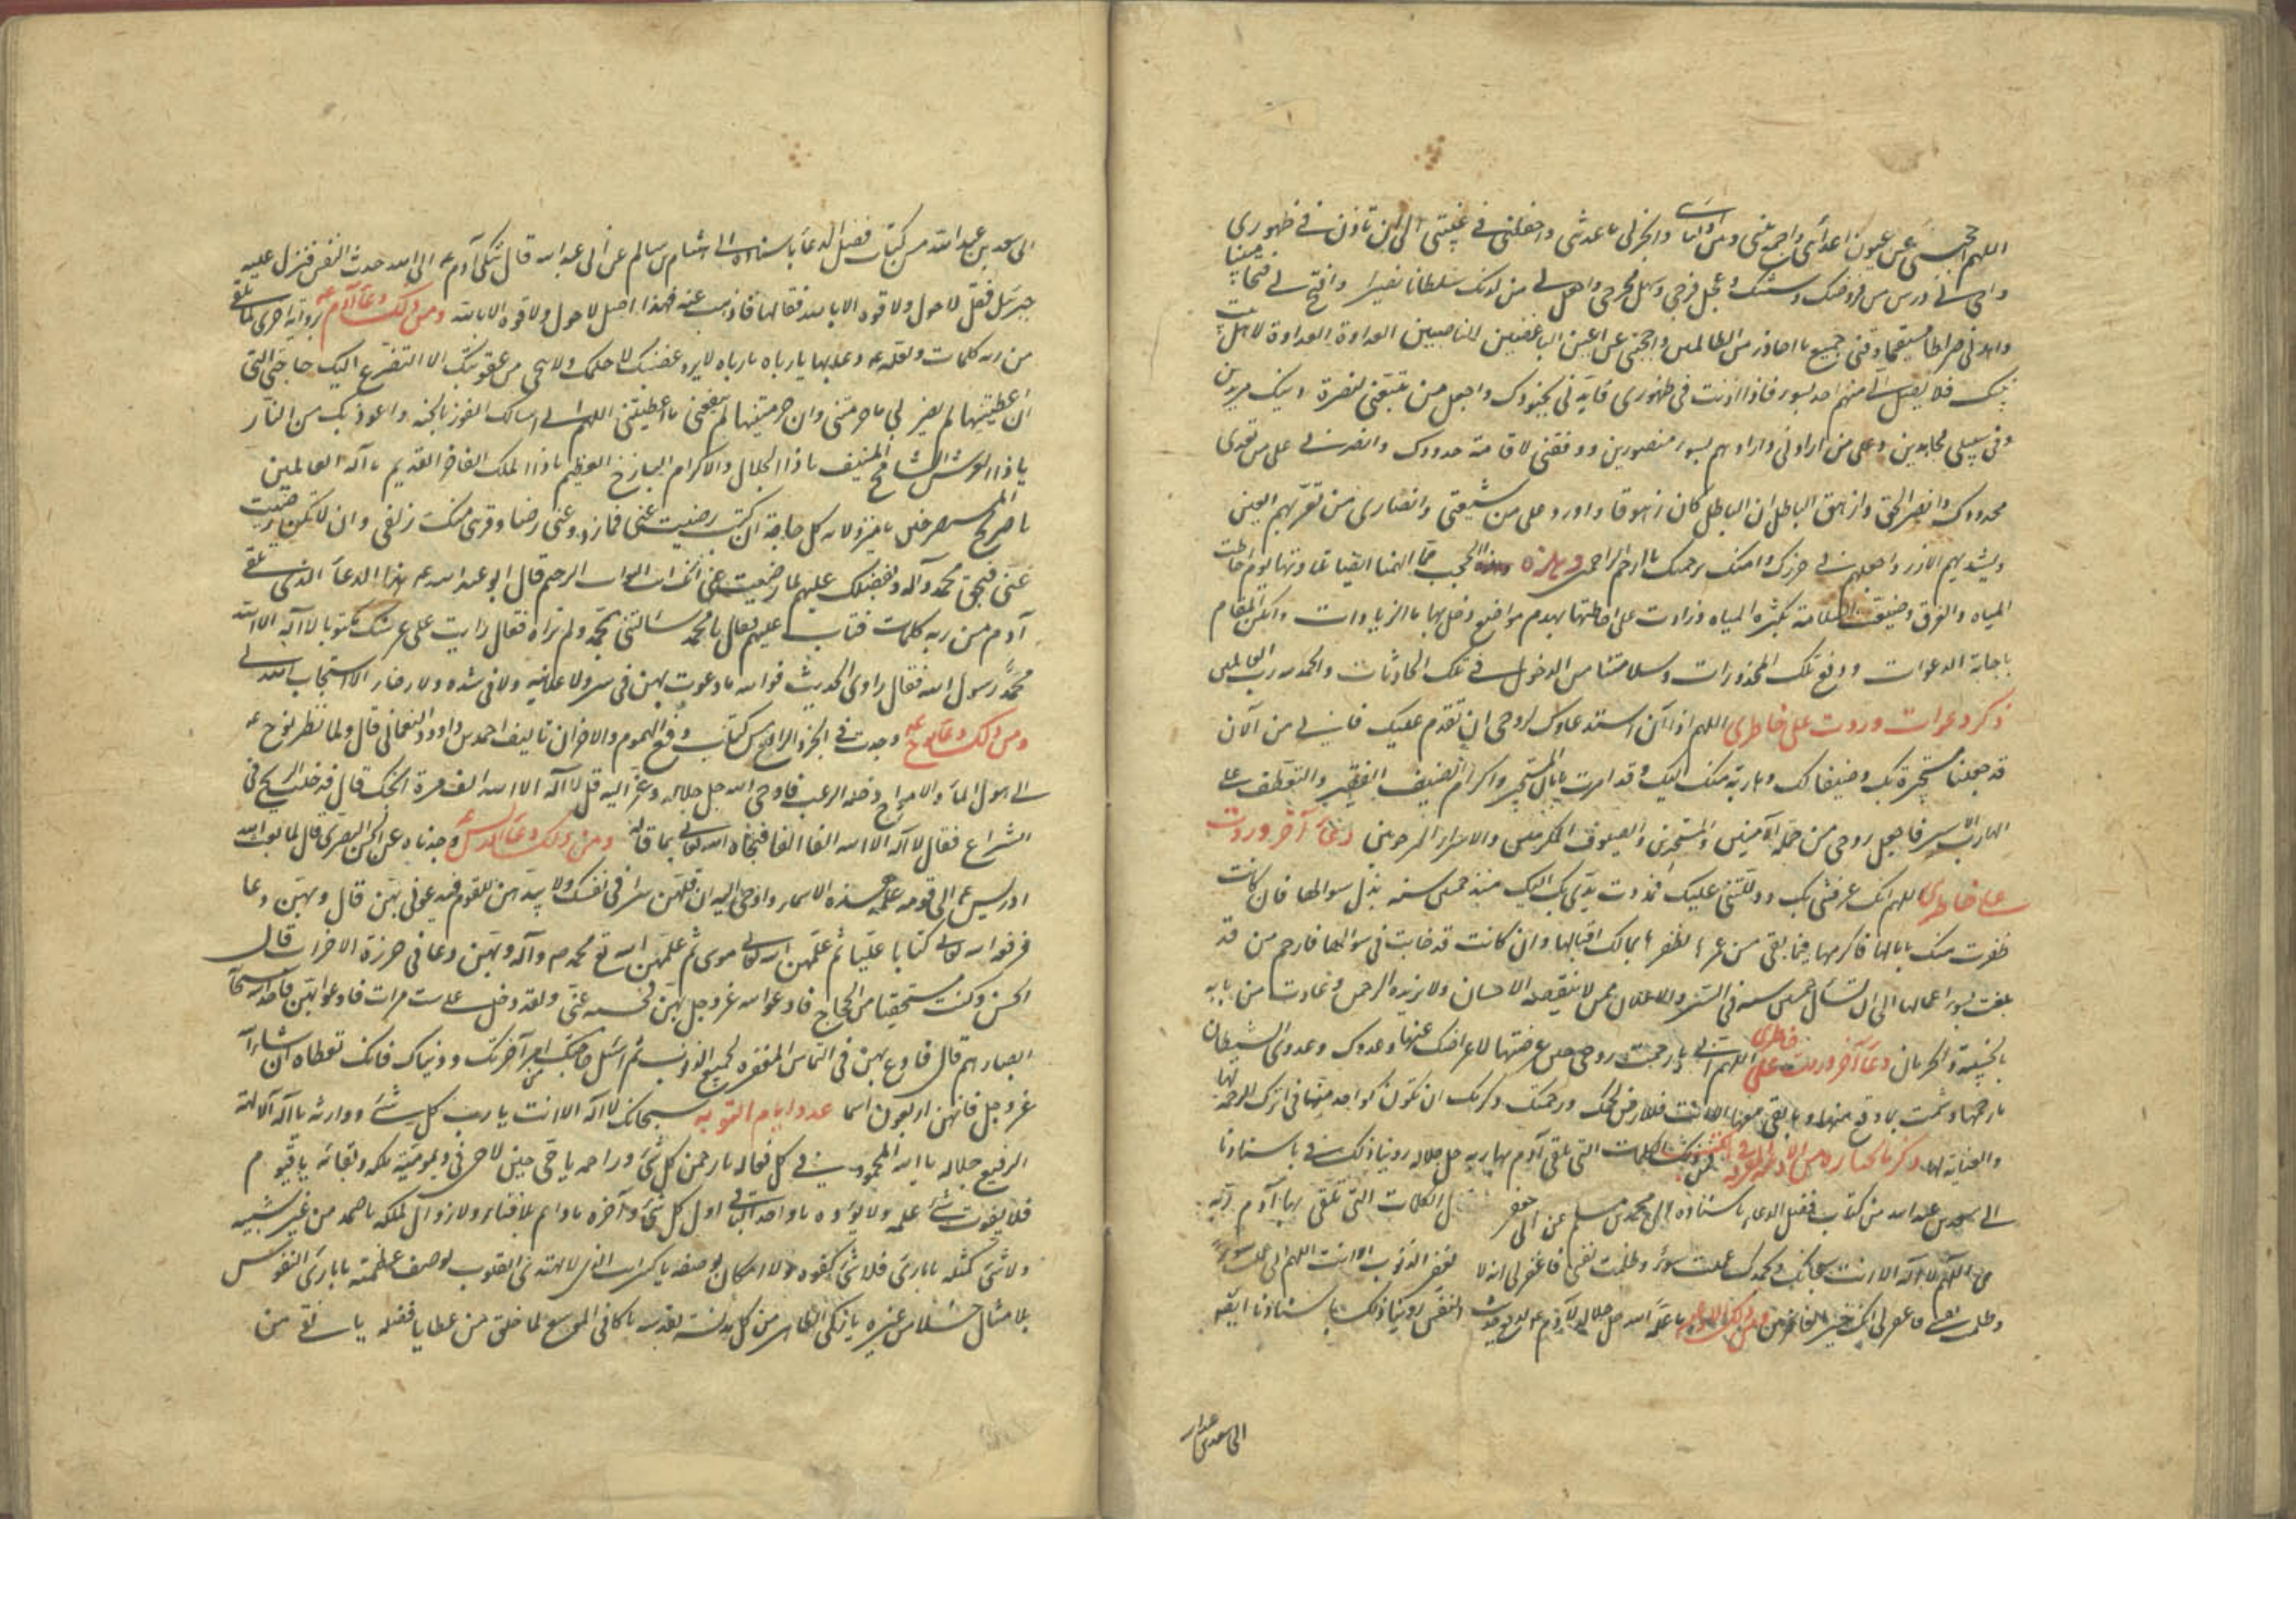 اللهم احجبني عن عيون اعدائي واجمع بيني وبين اوليائي وانجز لي ما وعدتني واحفظني في غيبتي الى ان تاذن لي في ظهوري
واحي لي ما درس من فروضك وسننك وعجل فرجي وسهل مخرجي واجعل لي من لدنك سلطانا نصيرا وافتح لي فتحا مبينا
واهدني صراطا مستقيما وقني جميع ما احاذر من الظالمين واحجبني عن اعين الباغضين الناصبين العداوة العداوة لاهل بيت
نبيك فلا يصل الي منهم احد بسوء فاذا اذنت في ظهوري فايدني بجنودك واجعل من يتبعني لنصرة دينك مريدين
وفي سبيلك مجاهدين وعلى من ارادني وارادهم بسوء منصورين ووفقني لاقامة حدودك وانصرني على من تعدى
محدودك وانصر الحق وازهق الباطل ان الباطل كان زهوقا واورد علي من شيعتي وانصاري من تقر بهم العين
ويشد بهم الازر واجعلهم في حرزك وامنك برحمتك يا ارحم الراحمين
المياه والغرق وضيقت السلامة بكثرة المياه وزادت على احاطتها بهدم مواضع دخل بها ماء الزيادات وامكن المقام
باجابة الدعوات ودفع تلك المحذورات وسلامتنا من الدخول في تلك الحادثات والحمد لله رب العالمين
ذكر دعوات وردت على خاطري اللهم اذا كان استدعاؤك لروحي ان تقدم عليك فانني من الآن
قد جعلتها مستجيرة بك وضيفا لك وهاربة منك اليك وقد امرت بامان المستجير واكرام الضيف الفقير والتعطف على
الهارب الاسير فاجعل روحي من جملة الآمنين والمستجيرين والضيوف المكرمين والاسراء المرحومين دعاء آخر وردت
على خاطري اللهم انك عرفتني بك ودللتني عليك فمددت يدي بك اليك منذ خمسين سنه بذل سؤالها فان كانت
ظفرت منك بامالها فاكرمها فيما بقي من عمرها لظفرها بمالك اقبالها وان كانت قد خابت في سؤالها فارحم من قد
بلغت بسوء اعمالها الى ان تسال خمسين سنه في الستر والاعلان ممن لا ينقصه الاحسان ولا يزيده الحرمان وعادت من بابه
بالخيبة والحرمان دعاء آخر وردت على خاطري اللهم انني ما رحمت روحي حين عرضتها لاعراضك عنها وعدوك وعدوي الشيطان
ما رحمها وشمت بما وقع منها وما بقي معها الا انت فلا ارض لحلمك ورحمتك وكرمك ان تكون كواحد منا في ترك الرحمة لها
والعناية لها ذكر ما نختاره من الادعية الكلمات التي تلقى آدم بها ربه جل جلاله روينا ذلك باسنادنا
الى سعد بن عبد الله من كتاب فضل الدعاء باسناده الى محمد بن مسلم عن ابي جعفر الكلمات التي تلقى بها آدم ربه
اللهم لا اله الا انت سبحانك وبحمدك عملت سوءا وظلمت نفسي فاغفر لي انه لا يغفر الذنوب الا انت اللهم اني عملت سوءا
وظلمت نفسي فاغفر لي انك خير الغافرين ومن ذلك ما علمه الله جل جلاله لآدم لدفع حديث النفس روينا ذلك باسنادنا ايضا
الى سعد بن عبد الله
الى سعد بن عبد الله من كتاب فضل الدعاء باسناده الى هشام بن سالم عن ابي عبد الله قال شكى آدم الى الله حديث النفس فنزل عليه
جبرئل فقال قل لا حول ولا قوة الا بالله فقالها فاذهب عنه فهذا اصل لا حول ولا قوة الا بالله ومن ذلك دعاء آدم برواية اخرى لما تلقى
من ربه كلمات وعلمه بها يا رباه يا رباه لا يرد غضبك الا حلمك ولا ينجي من عقوبتك الا التضرع اليك حاجتي التي
ان اعطيتنيها لم يضرني ما حرمتني وان حرمتنيها لم ينفعني ما اعطيتني اللهم اني اسالك الفوز بالجنه واعوذ بك من النار
يا ذا العرش الشامخ المنيف يا ذا الجلال والاكرام الباذخ العظيم يا ذا الملك الفاخر القديم يا اله العالمين
يا صريخ المستصرخين يا منزولا به كل حاجة ان كنت رضيت عني فازدد عني رضا وقربني منك زلفى وان لا تكن رضيت
عني فبحق محمد وآله وبفضلك عليهم لما رضيت عني انك انت التواب الرحيم قال ابو عبد الله هذا الدعاء الذي تلقى
آدم من ربه كلمات فتاب عليهم فقال يا آدم سالتني بمحمد ولم تراه فقال رايت على عرشك مكتوبا لا اله الا الله
محمد رسول الله فقال راوي الحديث فوالله ما دعوت بهن في سر ولا علانية ولا في شدة ولا رخاء الا استجاب الله لي
ومن ذلك دعاء نوح وجدت في الجزء الرابع من كتاب دفع الهموم والاحزان تاليف احمد بن داود النعماني قال ولما نظر نوح
الى هول الماء والامواج دخله الرعب فاوحى الله جل جلاله وعز اليه قل لا اله الا الله الف مرة انجك قال فدخلت الريح في
الشراع فقال لا اله الا الله الفا الفا فنجاه الله تعالى بما قاله ومن ذلك دعاء ادريس وجدناه عن الحسن البصري قال لما بعث الله
ادريس الى قومه علمه هذه الاسماء واوحى اليه ان قلهن سرا في نفسك ولا تبدهن للقوم فيدعوني بهن قال وبهن دعا
فرفعه الله تعالى مكانا عليا ثم علمهن الله تعالى موسى ثم علمهن الله تع محمد ص وآله وبهن دعا في غزوة الاحزاب قال
الحسن وكنت مستخفيا من الحجاج فادعو الله عز وجل بهن فحبسه عني ولقد دخل علي ست مرات فادعو بهن فاخذ الله سبحانه
ابصارهم قال فادع بهن في التماس المغفرة لجميع الذنوب ثم اسئل حاجتك من امر آخرتك ودنياك فانك تعطاه ان شاء الله
عز وجل فانهن اربعون اسما عدد ايام التوبة سبحانك لا اله الا انت يا رب كل شئ ووارثه يا اله الآلهة
الرفيع جلاله يا الله المحمود في كل فعاله يا رحمن كل شئ وراحمه يا حي حين لا حي في ديمومية ملكه وبقائه يا قيوم
فلا يفوت شئ علمه ولا يؤوده يا واحد الباقي اول كل شئ وآخره يا دائم بلا فناء ولا زوال لملكه يا صمد من غير شبيه
ولا شئ كمثله يا بارئ فلا شئ كفوه ولا امكان لوصفه يا كبير انت الذي لا تهتدي القلوب لوصف عظمته يا بارئ النفوس
بلا مثال خلا من غيره يا زاكي الطاهر من كل آفة بقدسه يا كافي الموسع لما خلق من عطايا فضله يا نقي من